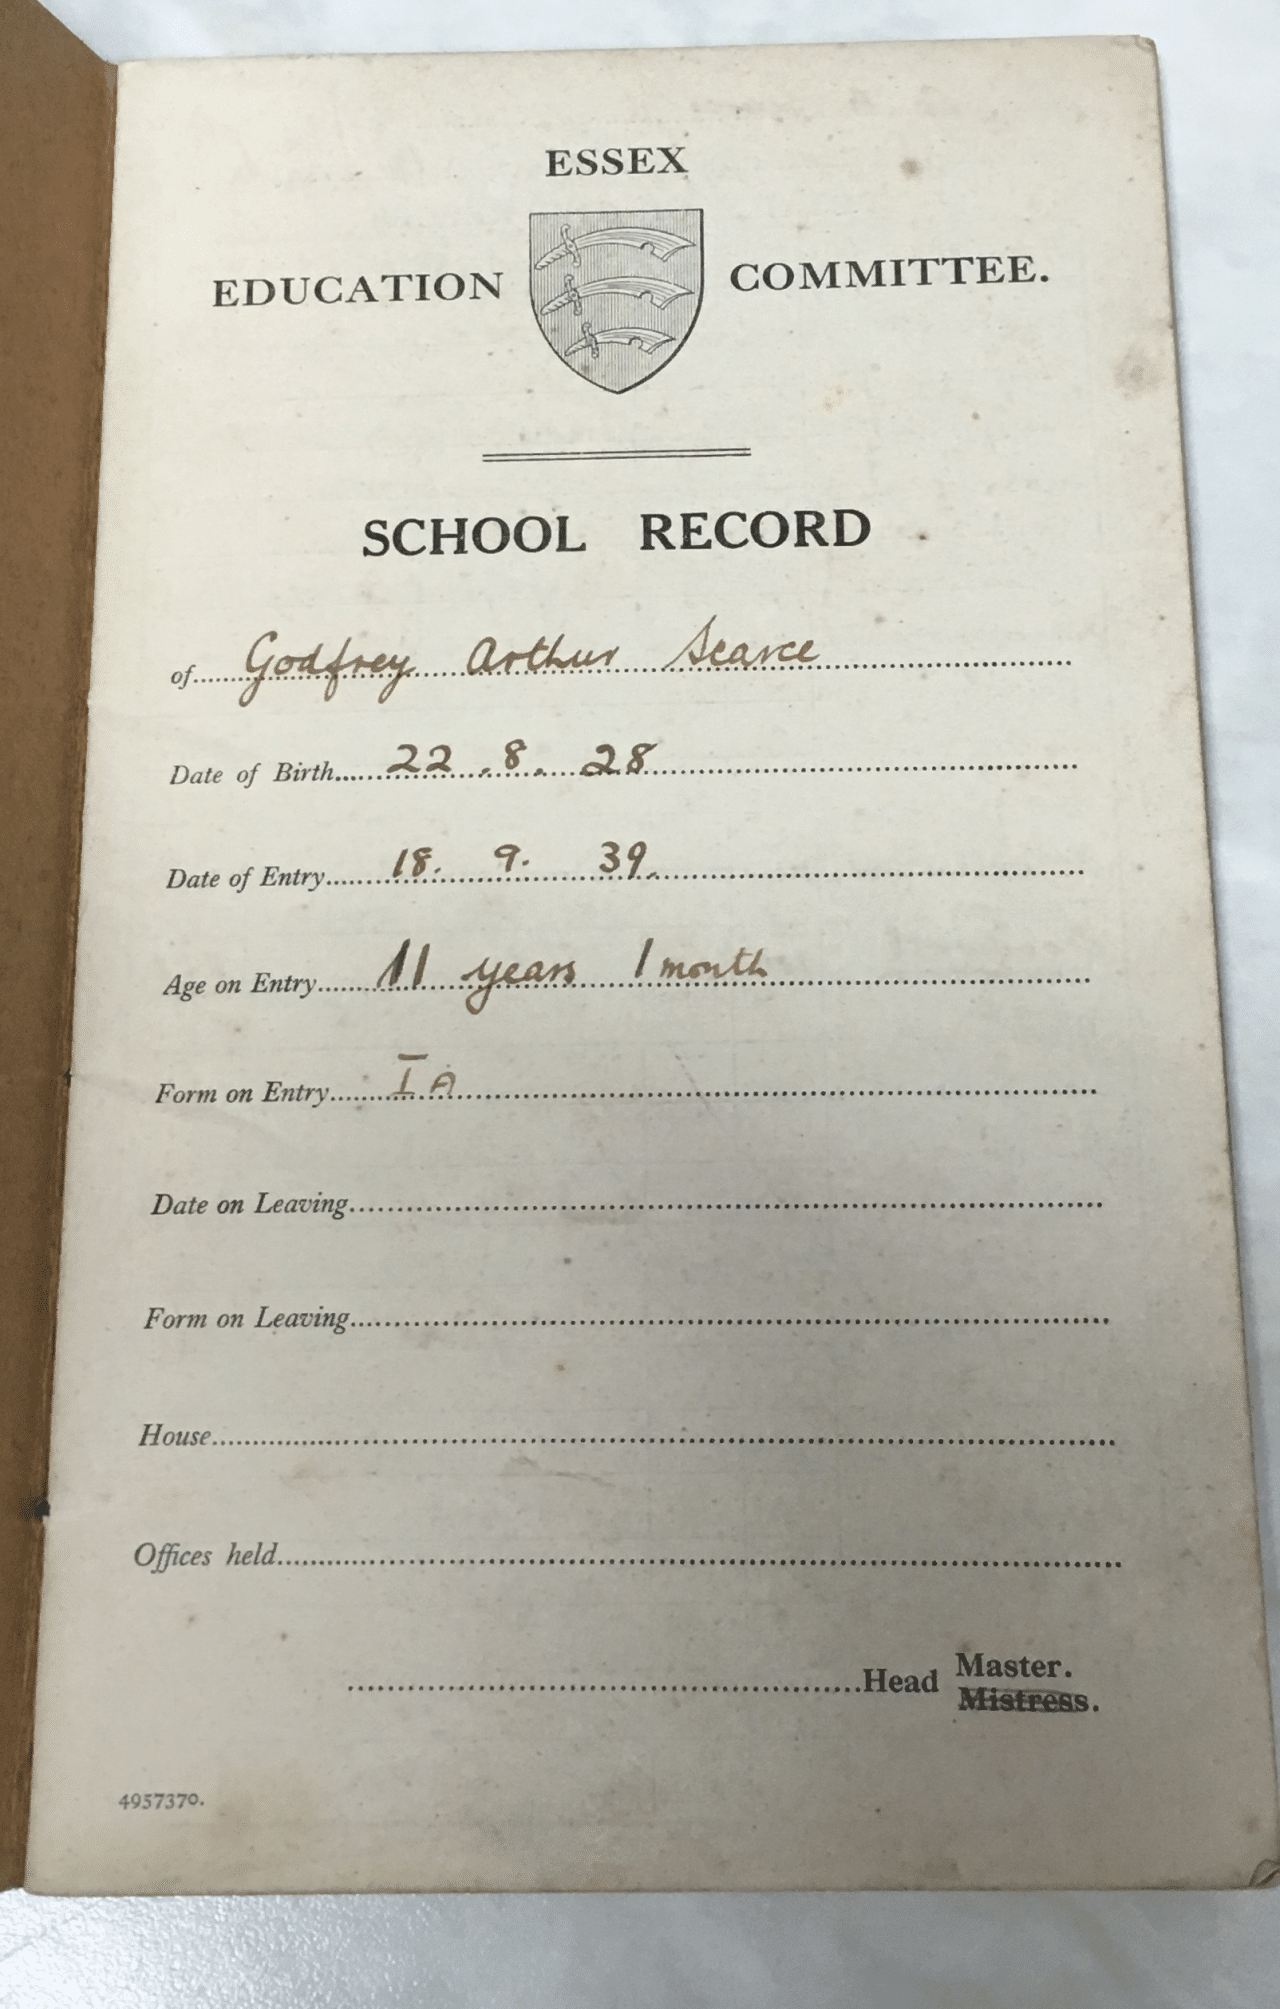 ESSEX
EDUCATION COMMITTEE.
SCHOOL RECORD
of Godfrey Arthur Scarce
Date of Birth 22.8.28
Date of Entry 18.9.39.
Age on Entry 11 years 1 month
Form on Entry I A
Date on Leaving
Form on Leaving
House
Offices held
Head Master.
Mistress.
4957370.